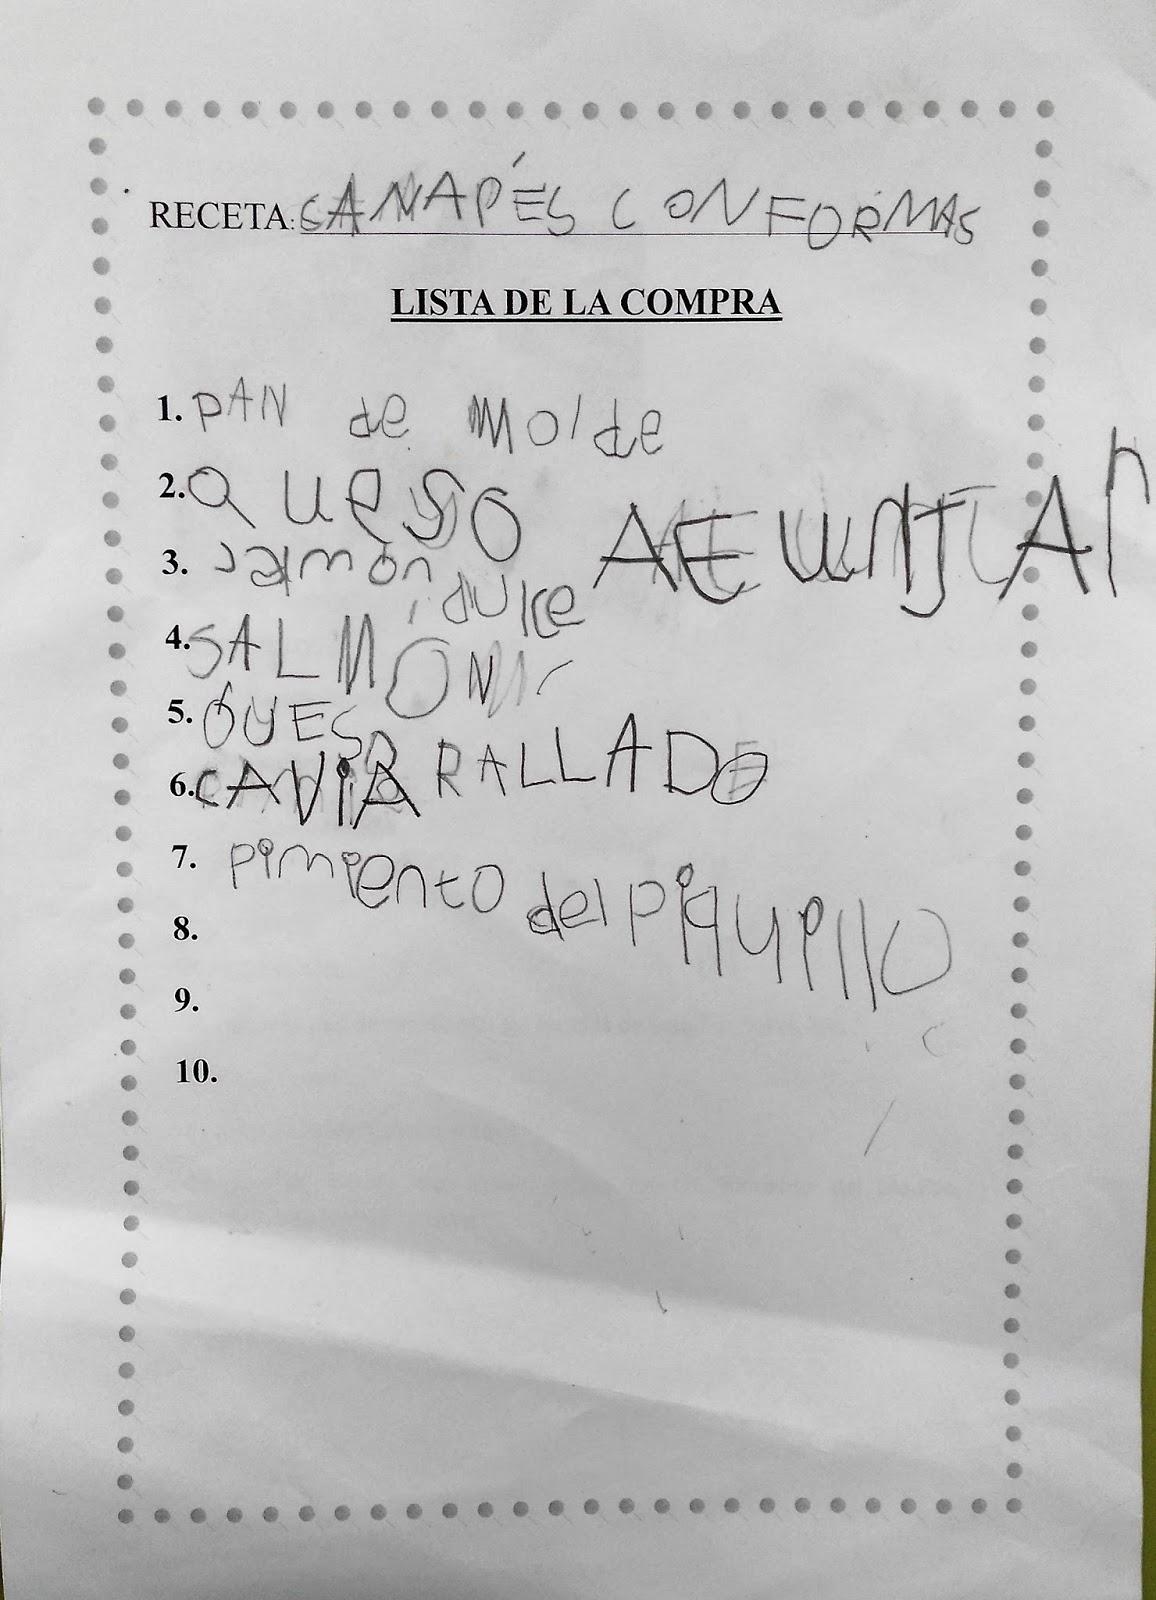 RECETA: CANAPÉS CON FORMAS
LISTA DE LA COMPRA
1. PAN de Molde
2. QUESO AE UNTAR
3. Jamón dulce
4. SALMÓN
5. QUESO RALLADO
6. CAVIA
7. pimiento del piquillo
8.
9.
10.